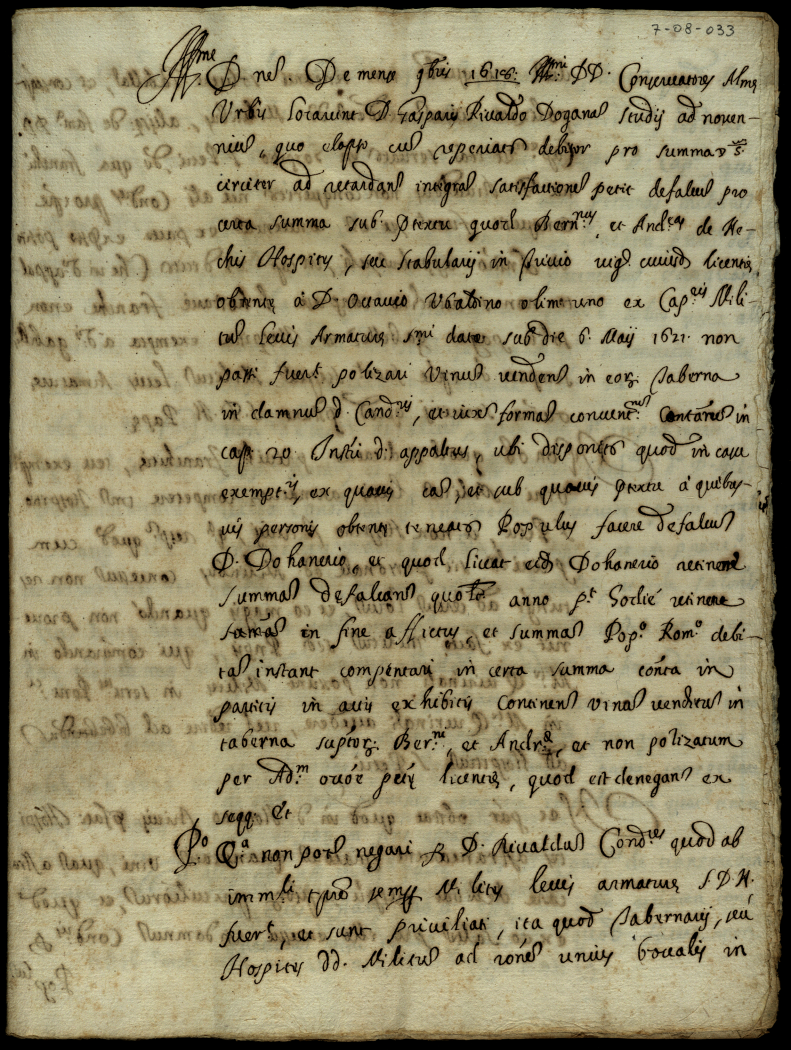 7-08-033
Ill.me
D. nel. De mense 9bris 1618: Ill.mi DD. Conservatores Almę
Urbis locarunt D. Gaspari Rivaldo Doganã studij ad noven-
niũ, quo elapso cũ reperiatr debitor pro summa
circiter ad retardanḋ integrã satisfactionẽ petit defalcũ pro
certa summa sub p̃textu quod Bern.nus, et And.eas de Ne-
chis Hospites, seu stabularij in vig.e licentię
obtentę à D. Octavio Ubaldino olim uno ex Cap.neis Mili-
tũ levis Armaturę s.mi datę sub die 6. Maij 1621. non
passi fuer.t polizari vinũ vendens in eorz. taberna
in damnũ d. Cond.ris, et iuxta formã convent.nis Contentã in
cap. 20. Instri d. appaltus, ubi disponitr quod in casu
exempt.nis, ex quavis cã, et sub quovis p̃textu à quibus-
vis personis obtentę teneatr Populus facere defalcũ
D. Dohanerio, et quod liceat eid. Dohanerio retinere
summas defalcanḋ quolt anno p.t hodie retinere
in fine afflictus, et summã Pop.o Rom.o debi-
tã instant compensari in certa summa cõnta in
partitis in actis exhibitis Continen̄ vinũ venditũ in
taberna sup.torz. Ber.ni, et Andreę, et non polizatum
per Ad.m p̃tę licentię, quod est denegand ex
seqq. Et
P.o Q.a non pot.t negari p D. Rivaldũ Cond.rem quod ab
imm.li tpre semp Milites levis armaturę S.D.N.
fuer.t, et sunt privilegiati, ita quod tabernarij, seu
Hospites dd. Militũ ad rõnẽ unius bocalis in